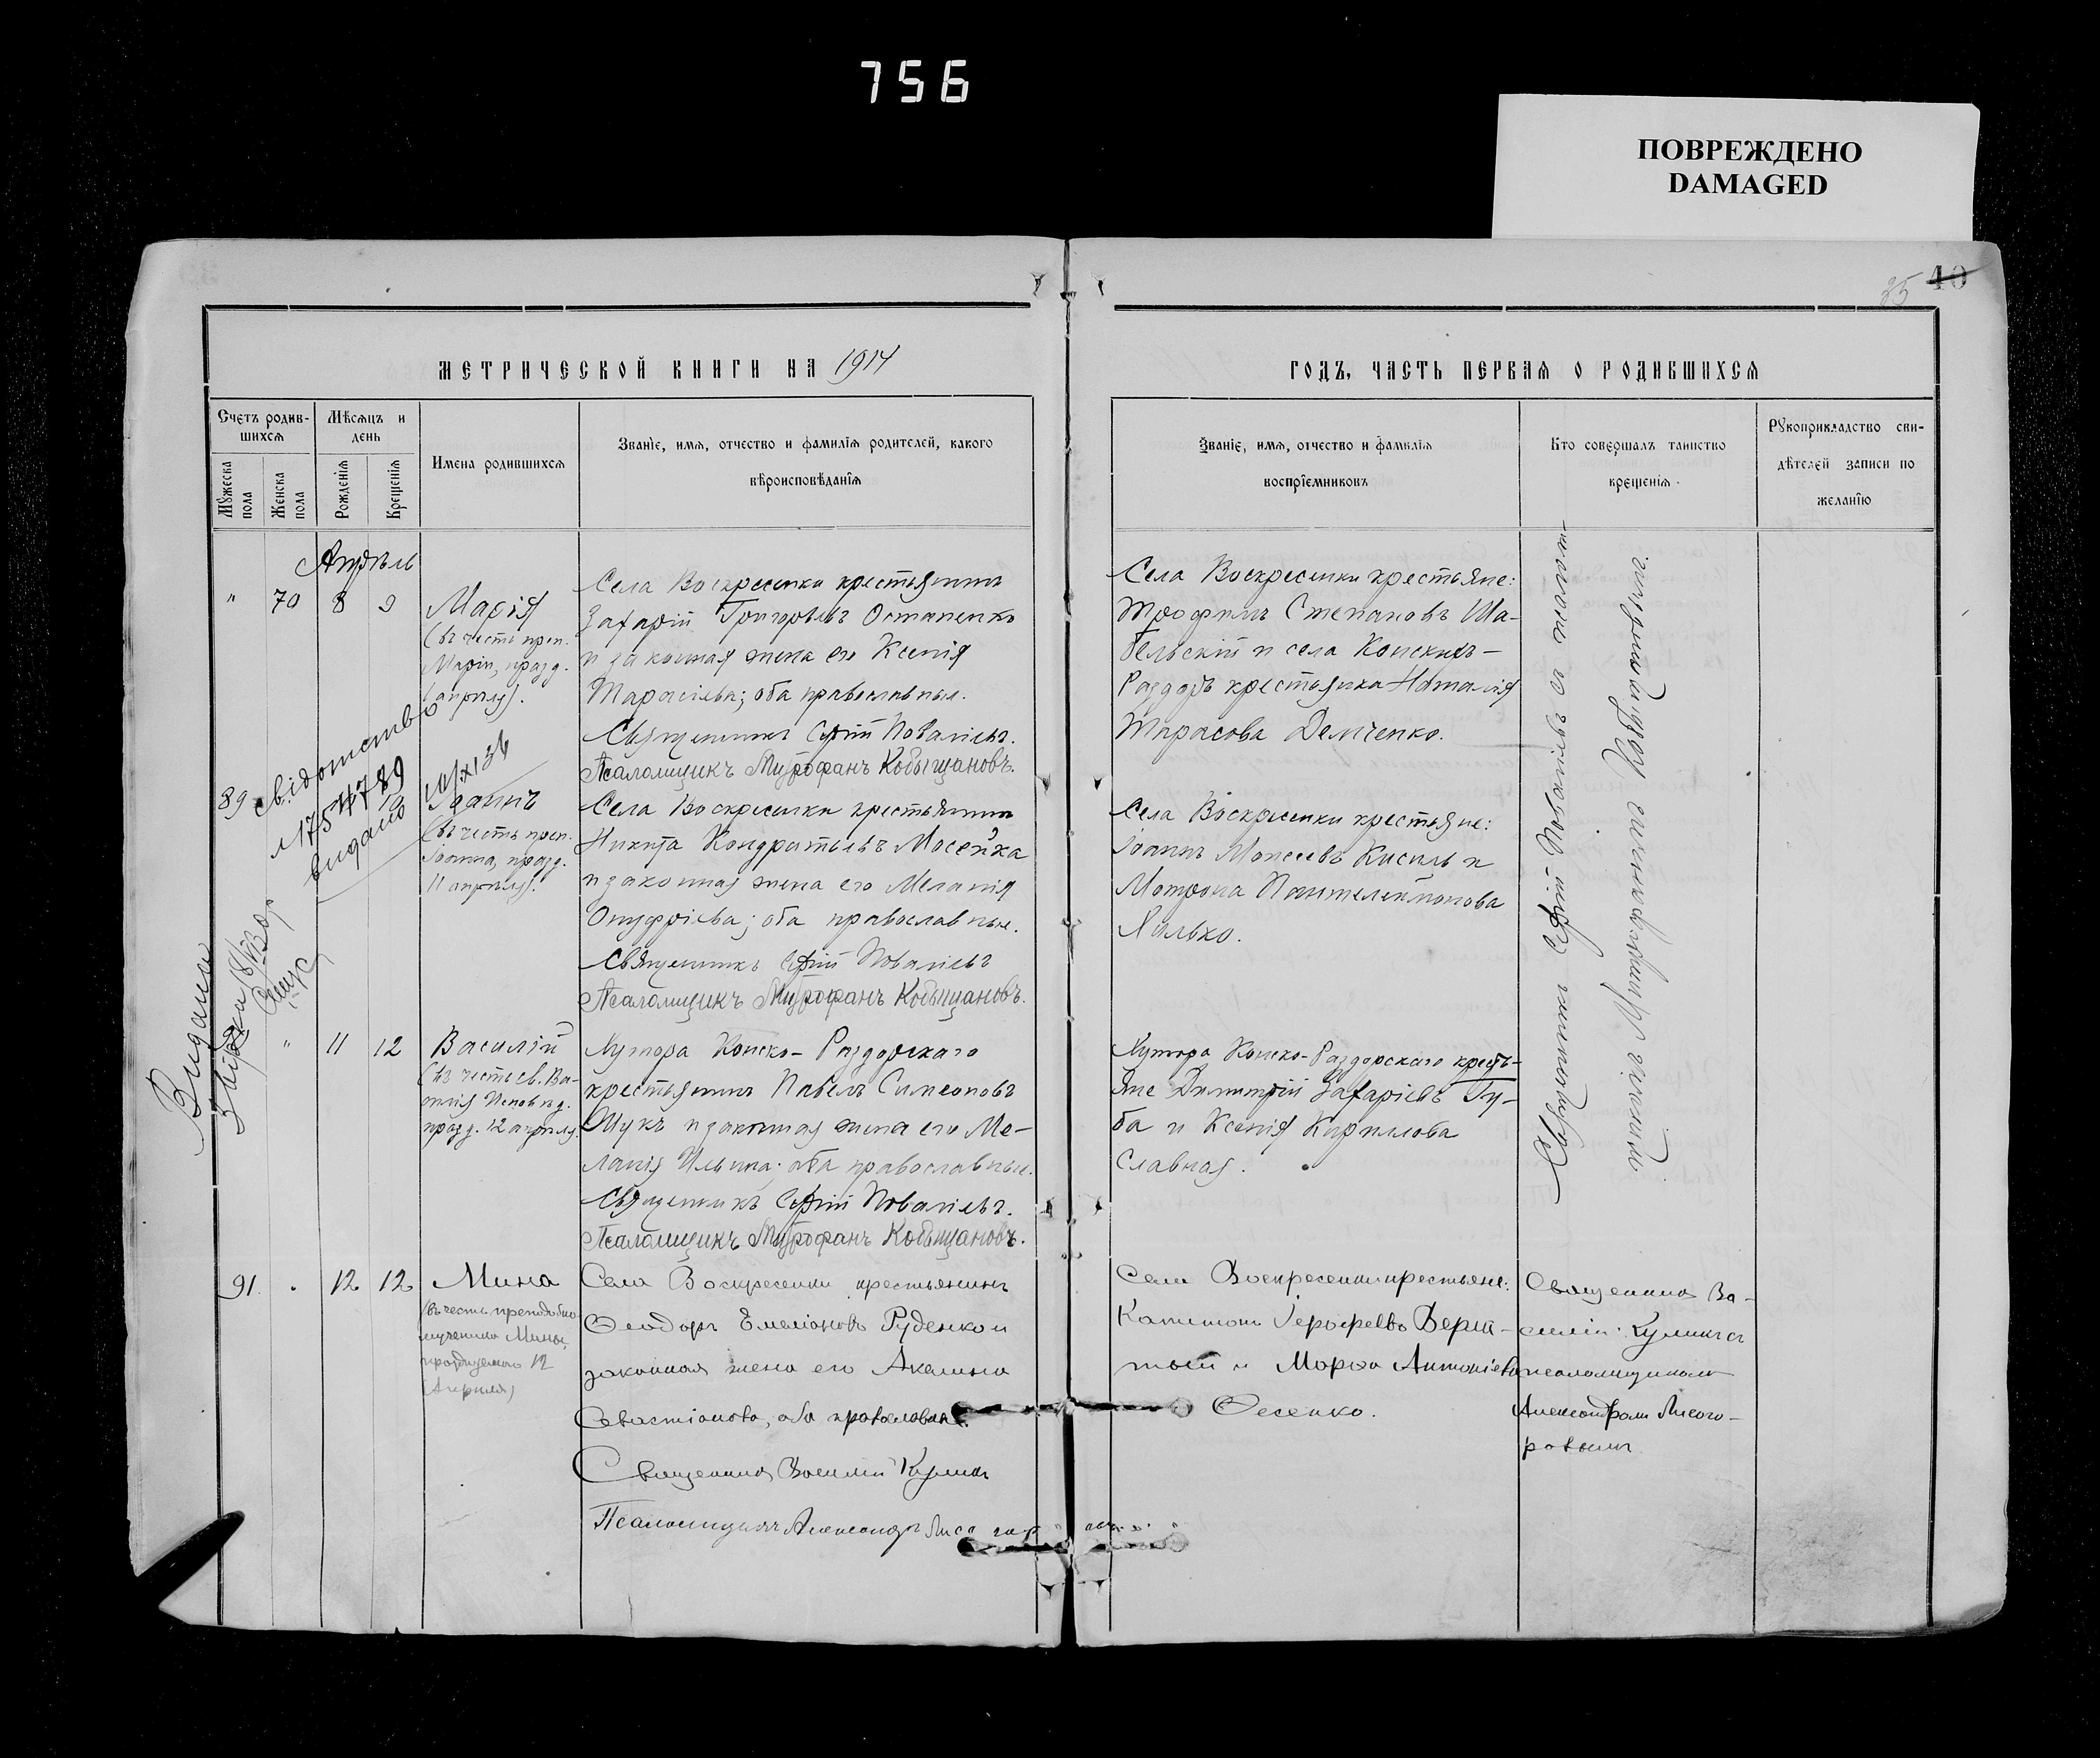 756
ПОВРЕЖДЕНО
DAMAGED
35 40
МЕТРИЧЕСКОЙ КНИГИ НА 1914
ГОДЪ, ЧАСТЬ ПЕРВАЯ О РОДИВШИХСЯ
Счетъ родив-
шихся
Мужеска
пола
Женска
пола
Мѣсяцъ и
день
Рожденія
Крещенія
Имена родившихся
Званіе, имя, отчество и фамилія родителей, какого
вѣроисповѣданія
Званіе, имя, отчество и фамилія
воспріемниковъ
Кто совершалъ таинство
крещенія
Рукоприкладство сви-
дѣтелей записи по
желанію
Апрѣль
" 70 8 9
Марія
(въ честь преп.
Маріи, празд.
апрѣля).
Села Воскресенки крестьянинъ
Захарій Григорьевъ Остапенко
и законная жена его Ксенія
Тарасіева; оба православные.
Священникъ Сергій Поваліевъ.
Псаломщикъ Митрофанъ Кобыщановъ.
Села Воскресенки крестьяне:
Трофимъ Степановъ Ша-
бельскій и села Конскихъ-
Раздоръ крестьянка Наталія
Тарасова Демченко.
Священникъ Сергій Поваліевъ съ псалом-
щикомъ Митрофаномъ Кобыщановымъ.
89
Свідотство
видано
Іоаннъ
(въ честь преп.
Іоанна, празд.
11 апрѣля).
Села Воскресенки крестьянинъ
Никита Кондратьевъ Мосейка
и законная жена его Меланія
Онуфріева; оба православные.
Священникъ Сергій Поваліевъ
Псаломщикъ Митрофанъ Кобыщановъ.
Села Воскресенки крестьяне:
Іоаннъ Моисеевъ Кисиль и
Мотрона Пантелеймонова
Ялько.
Видана
" 11 12
Василій
(въ честь св. Ва-
силія Исповѣд.
празд. 12 апрѣля).
Хутора Конско-Раздорскаго
крестьянинъ Павелъ Симеоновъ
Щукъ и законная жена его Ме-
ланія Ильина; оба православные.
Священникъ Сергій Поваліевъ.
Псаломщикъ Митрофанъ Кобыщановъ.
Хутора Конско-Раздорскаго кресть-
яне Димитрій Захаріевъ Гу-
ба и Ксенія Кириллова
Славная.
91 . 12 12
Мина
(въ честь преподобно
мученика Мины,
празднуемаго 12
Апрѣля)
Села Воскресенки крестьянинъ
Ѳеодоръ Емеліановъ Руденко и
законная жена его Акелина
Севастіанова, оба православн.
Священникъ Василій Куликъ
Псаломщикъ Александръ
Села Воскресенки крестьяне:
Капитонъ Іерофеевъ Верти-
тый и Марѳа Антоніева
Фесенко.
Священникъ Ва-
силій Куликъ съ
псаломщикомъ
Александромъ Лисого-
ровымъ